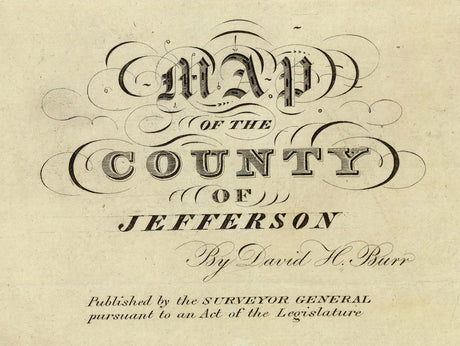 MAP
OF THE
COUNTY
OF
JEFFERSON
By David H. Burr
Published by the SURVEYOR GENERAL
pursuant to an Act of the Legislature